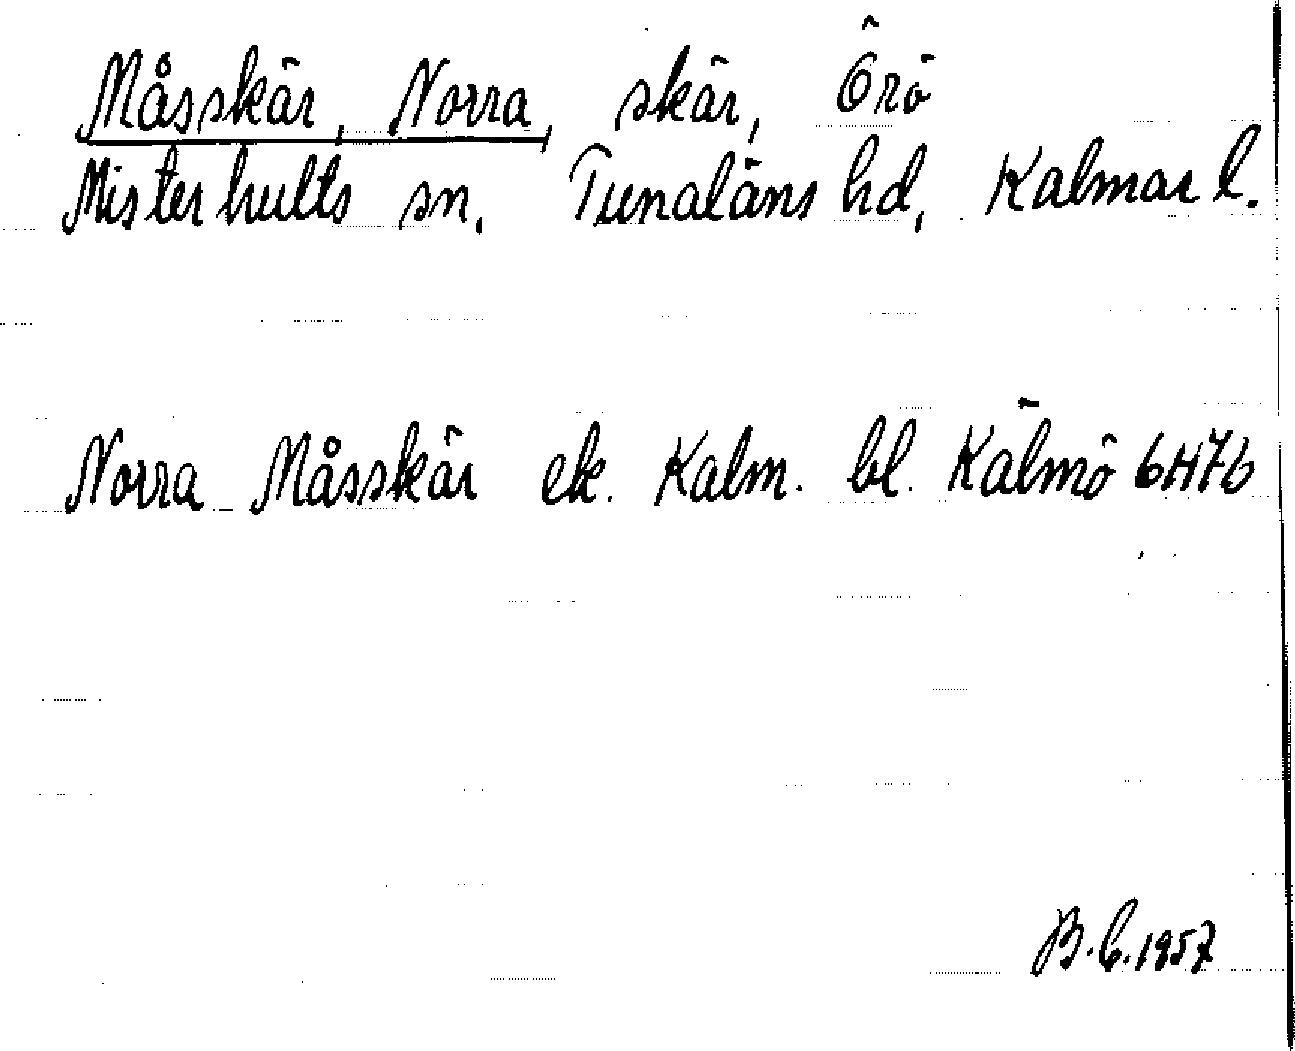 Måsskär, Norra, skär, Örö
Misterhults sn. Tunaläns hd, Kalmar l.
Norra Måsskär ek. Kalm. bl. Kälmö 6H7b
B.C. 1957